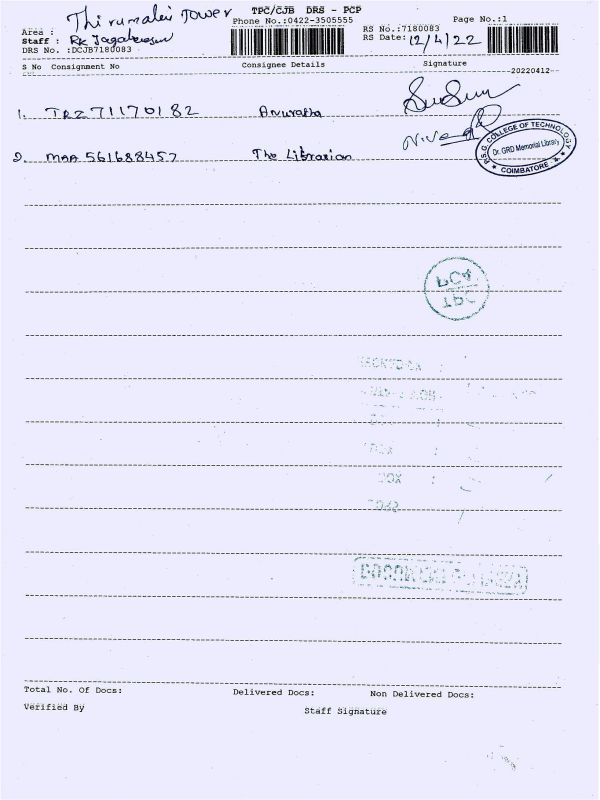 TPC/CJB DRS - PCP
Phone No.:0422-3505555
Page No.:1
Area : Thirumalai Tower
RS No.:7180083
Staff : RK
RS Date: 12/4/22
DRS No. :DCJB7180083
S No Consignment No Consignee Details Signature
20220412
1. TRZ71170182 Anuratha
2. MAA 561688457 The Librarian
P.S.G. COLLEGE OF TECHNOLOGY
Dr. GRD Memorial Library
COIMBATORE
Total No. Of Docs: Delivered Docs: Non Delivered Docs:
Verified By Staff Signature